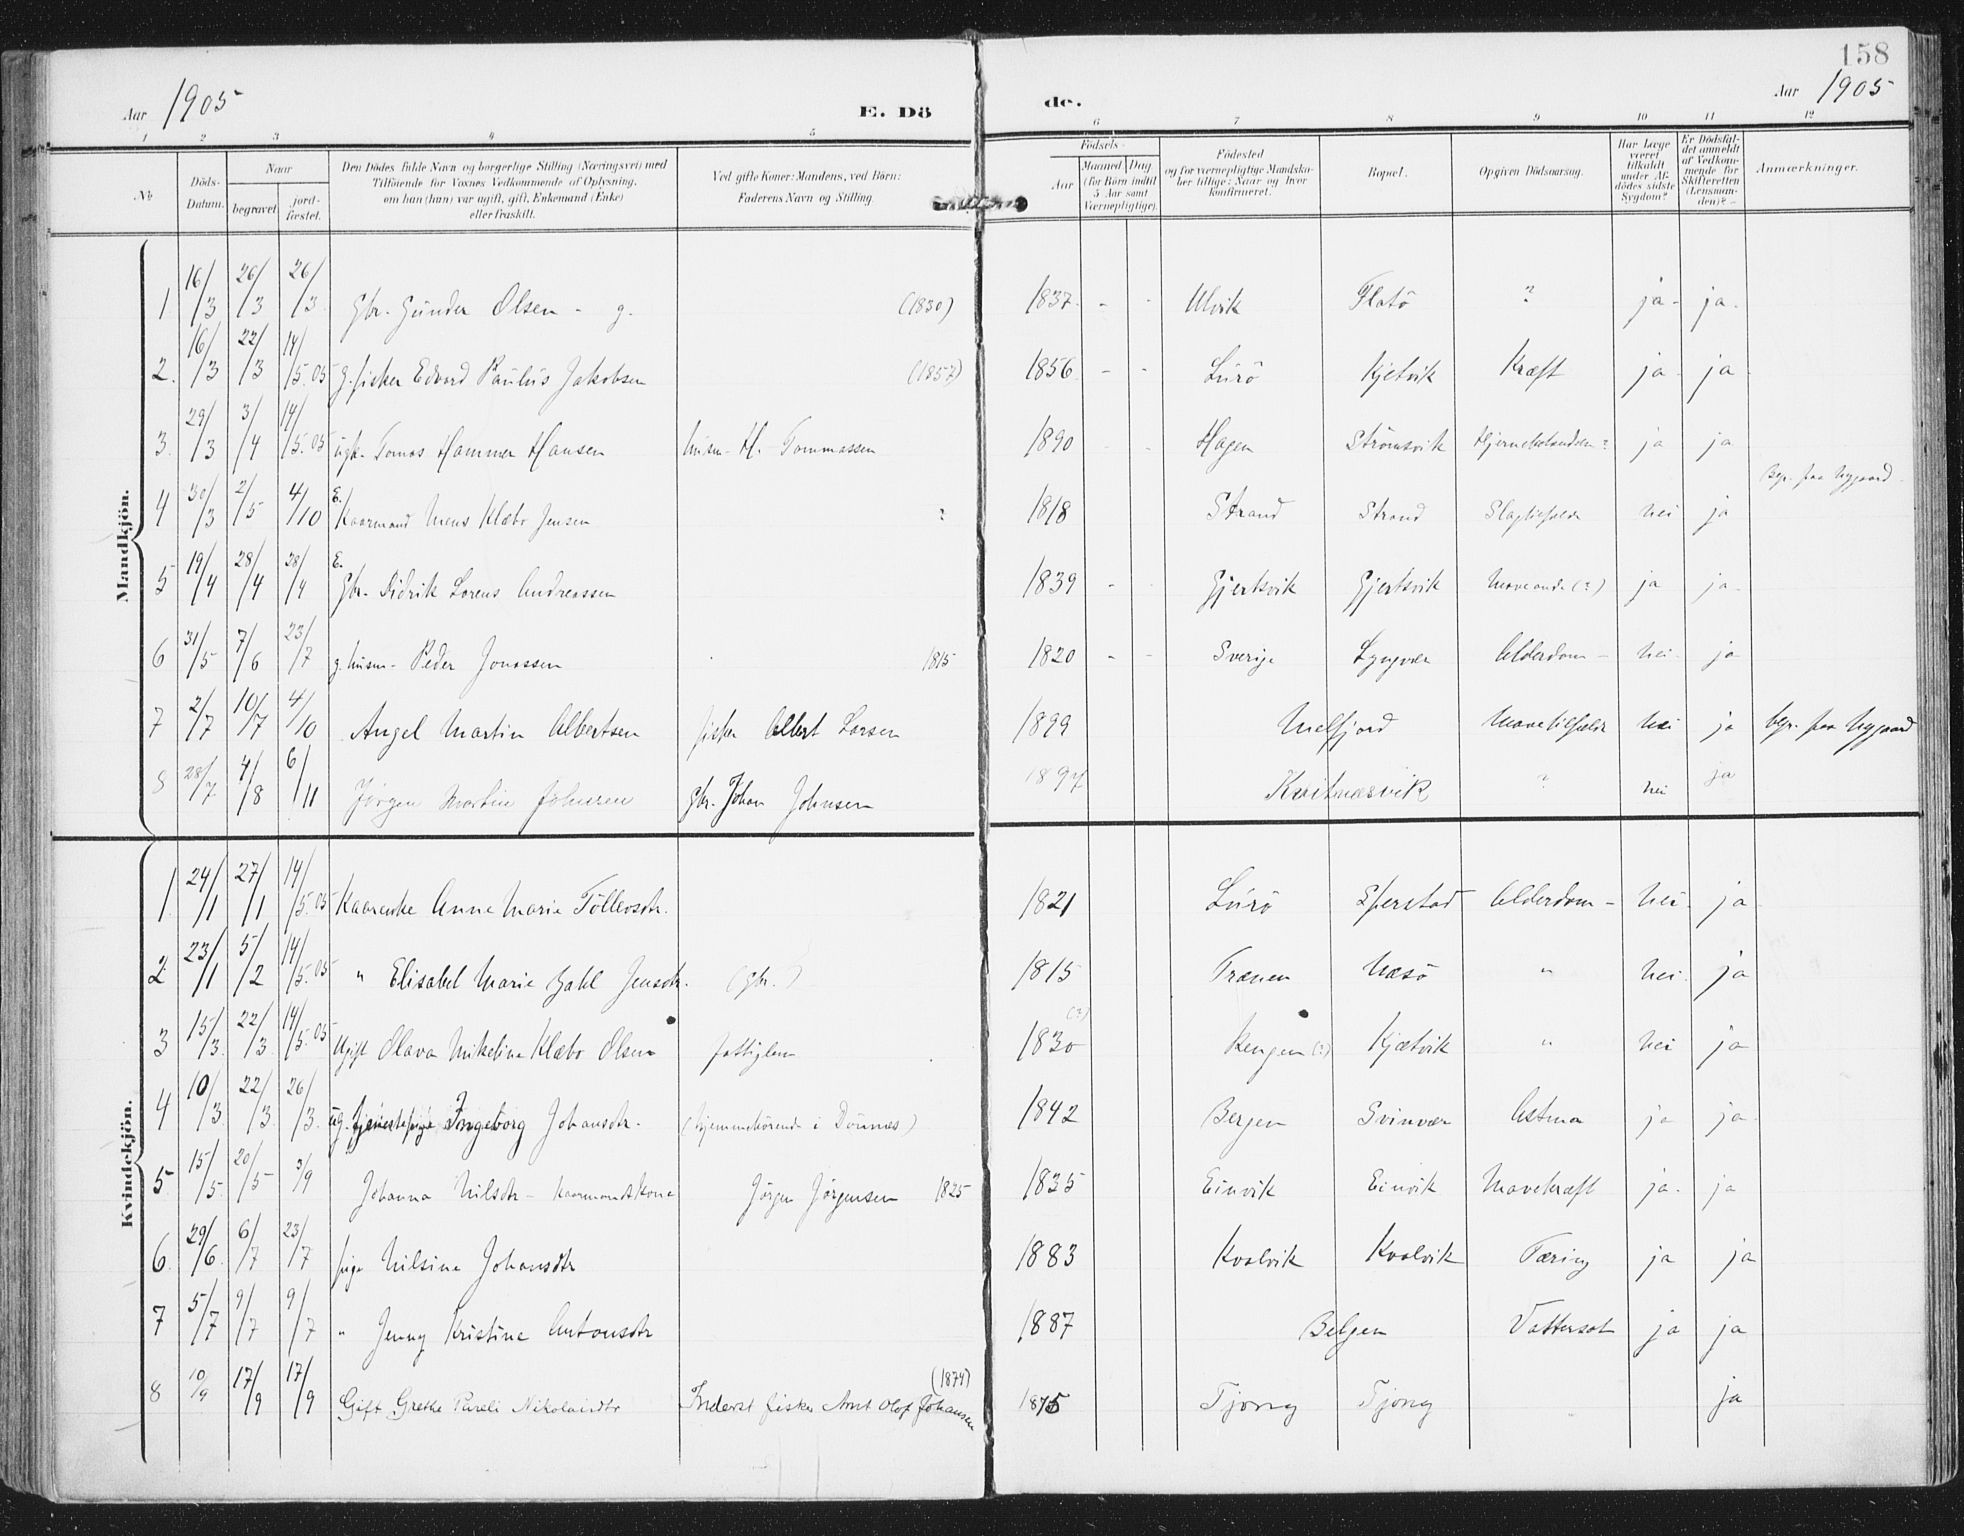 158
Aar 1905 E. Dö de. Aar 1905
1 2 3 4 5 6 7 8 9 10 11 12
No. Döds-Datum. Naar begravet. jordfæstet. Den Dödes fulde Navn og borgerlige Stilling (Næringsvei) med Tilföiende for Voxnes Vedkommende af Oplysning, om han (hun) var ugift, gift, Enkemand (Enke) eller fraskilt. Ved gifte Koner: Mandens, ved Börn: Faderens Navn og Stilling. Födsels- Aar Maaned Dag (for Börn indtil 5 Aar samt Værnepligtige). Födested og for værnepligtige Mandskaber tillige: Naar og hvor konfirmeret? Bopæl. Opgiven Dödsaarsag. Har Læge været tilkaldt under Afdödes sidste Sygdom? Er Dödsfaldet anmeldt af Vedkommende for Skifteretten (Lensmanden)? Anmærkninger.
Mandkjön.
1 16/3 26/3 26/3 Gbr. Gunder Olsen - g. (1830) 1837 - - Ulvik Flatö ? ja - ja -
2. 16/3 22/3 14/5.05 g. fisker Edvard Paulus Jakobsen (1857) 1856 - - Lurö Kjetvik Kræft ja - ja -
3. 29/3 3/4 14/5.05 ugb. Tomas Hammer Hansen husm. H. Tommassen 1890 - Hagen Strömsvik Hjernebetændelse? ja ja
4 30/3 2/5 4/10 E. Kaarmand Mens Klæbo Jensen ? 1818 Strand Strand Slagtilfælde nei ja Bgr. paa Nygaard
5 19/4 28/4 28/4 E. Gbr. Didrik Lorens Andreassen 1839 - - Gjertsvik Gjertsvik Maveonde (?) ja ja -
6 31/5 7/6 23/7 g. husm - Peder Jonassen 1815 1820 - - Sverige Lyngvær Alderdom - nei - ja
7 2/7 10/7 4/10 Angel Martin Albertsen fisker Albert Larsen 1899 Melfjord Mavetilfælde nei ja bgr. paa Nygaard
8 28/7 4/8 6/11 Jörgen Martin Johnsen Gbr. Johan Johnsen 1897 Kvitnæsvik ? nei ja
Kvindekjön.
1. 24/1 27/1 14/5.05 Kaarenke Anne Marie Tollevsdtr. 1821 Lurö Sperstad Alderdom - nei - ja -
2. 23/1 5/2 14/5.05 " Elisabet Marie Dahl Jensdtr. (Gbr.) 1815 Trænen Næsö " nei - ja
3 15/3. 22/3. 14/5.05 Ugift Olava Mikeline Klæbo Olsen fattiglem 1830 (?) Rengen (?) Kjætvik " nei ja
4 10/3. 22/3. 26/3. ug. tjenestepige Ingeborg Johansdtr. (hjemmehörende i Dönnæs) 1842 Bergen Svinvær Astma ja ja
5. 15/5. 20/5 3/9 Johanna Nilsdtr - Kaarmandskone Jörgen Jörgensen 1825 1835 Einvik Einvik Mavekræft ja - ja
6. 29/6. 6/7 23/7 pige Nilsine Johansdtr 1883 Kvalvik Kvalvik Tæring ja ja
7 5/7 9/7 9/7 " Jenny Kristine Antonsdtr 1887 Belgen Vattersot ja ja
8 10/9 17/9 17/9 Gift Grethe Pareli Nikolaisdtr Inderst fisker Arnt Olof Johansen (1874) 1875 Tjong Tjong ja